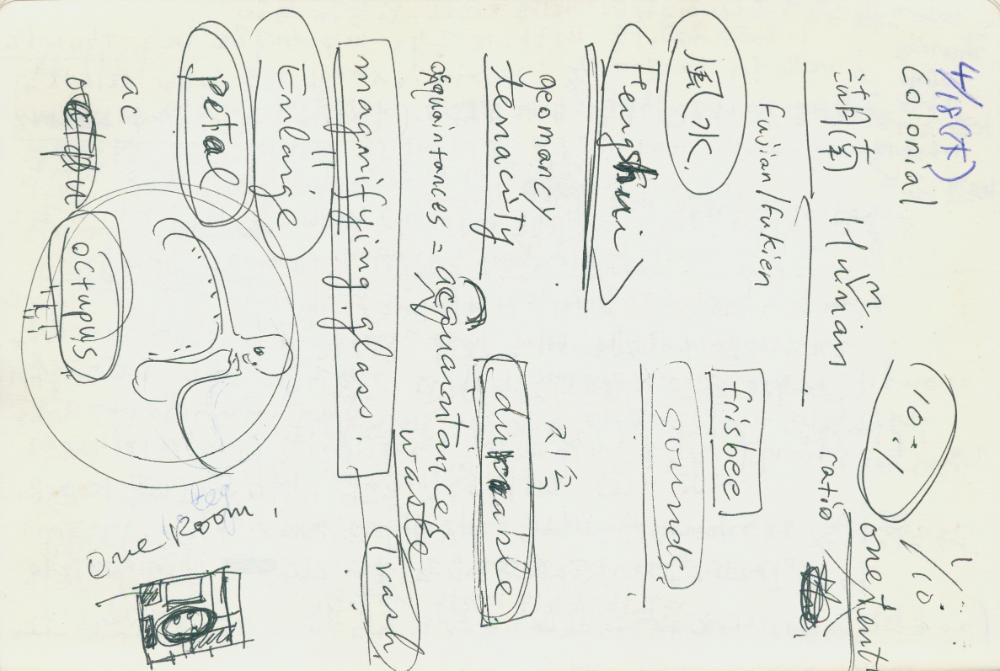 4/18(木)
Colonial
10%
1/10
one tenth
湖南 Hunan
ratio
fujian/Fukien
frisbee
風水.
sounds.
Fengshui
geomancy
tenacity
durable
acquaintances = acquaintances
waste
trash
magnifying glass.
Enlarge
petal
ac
octupus
One Room.